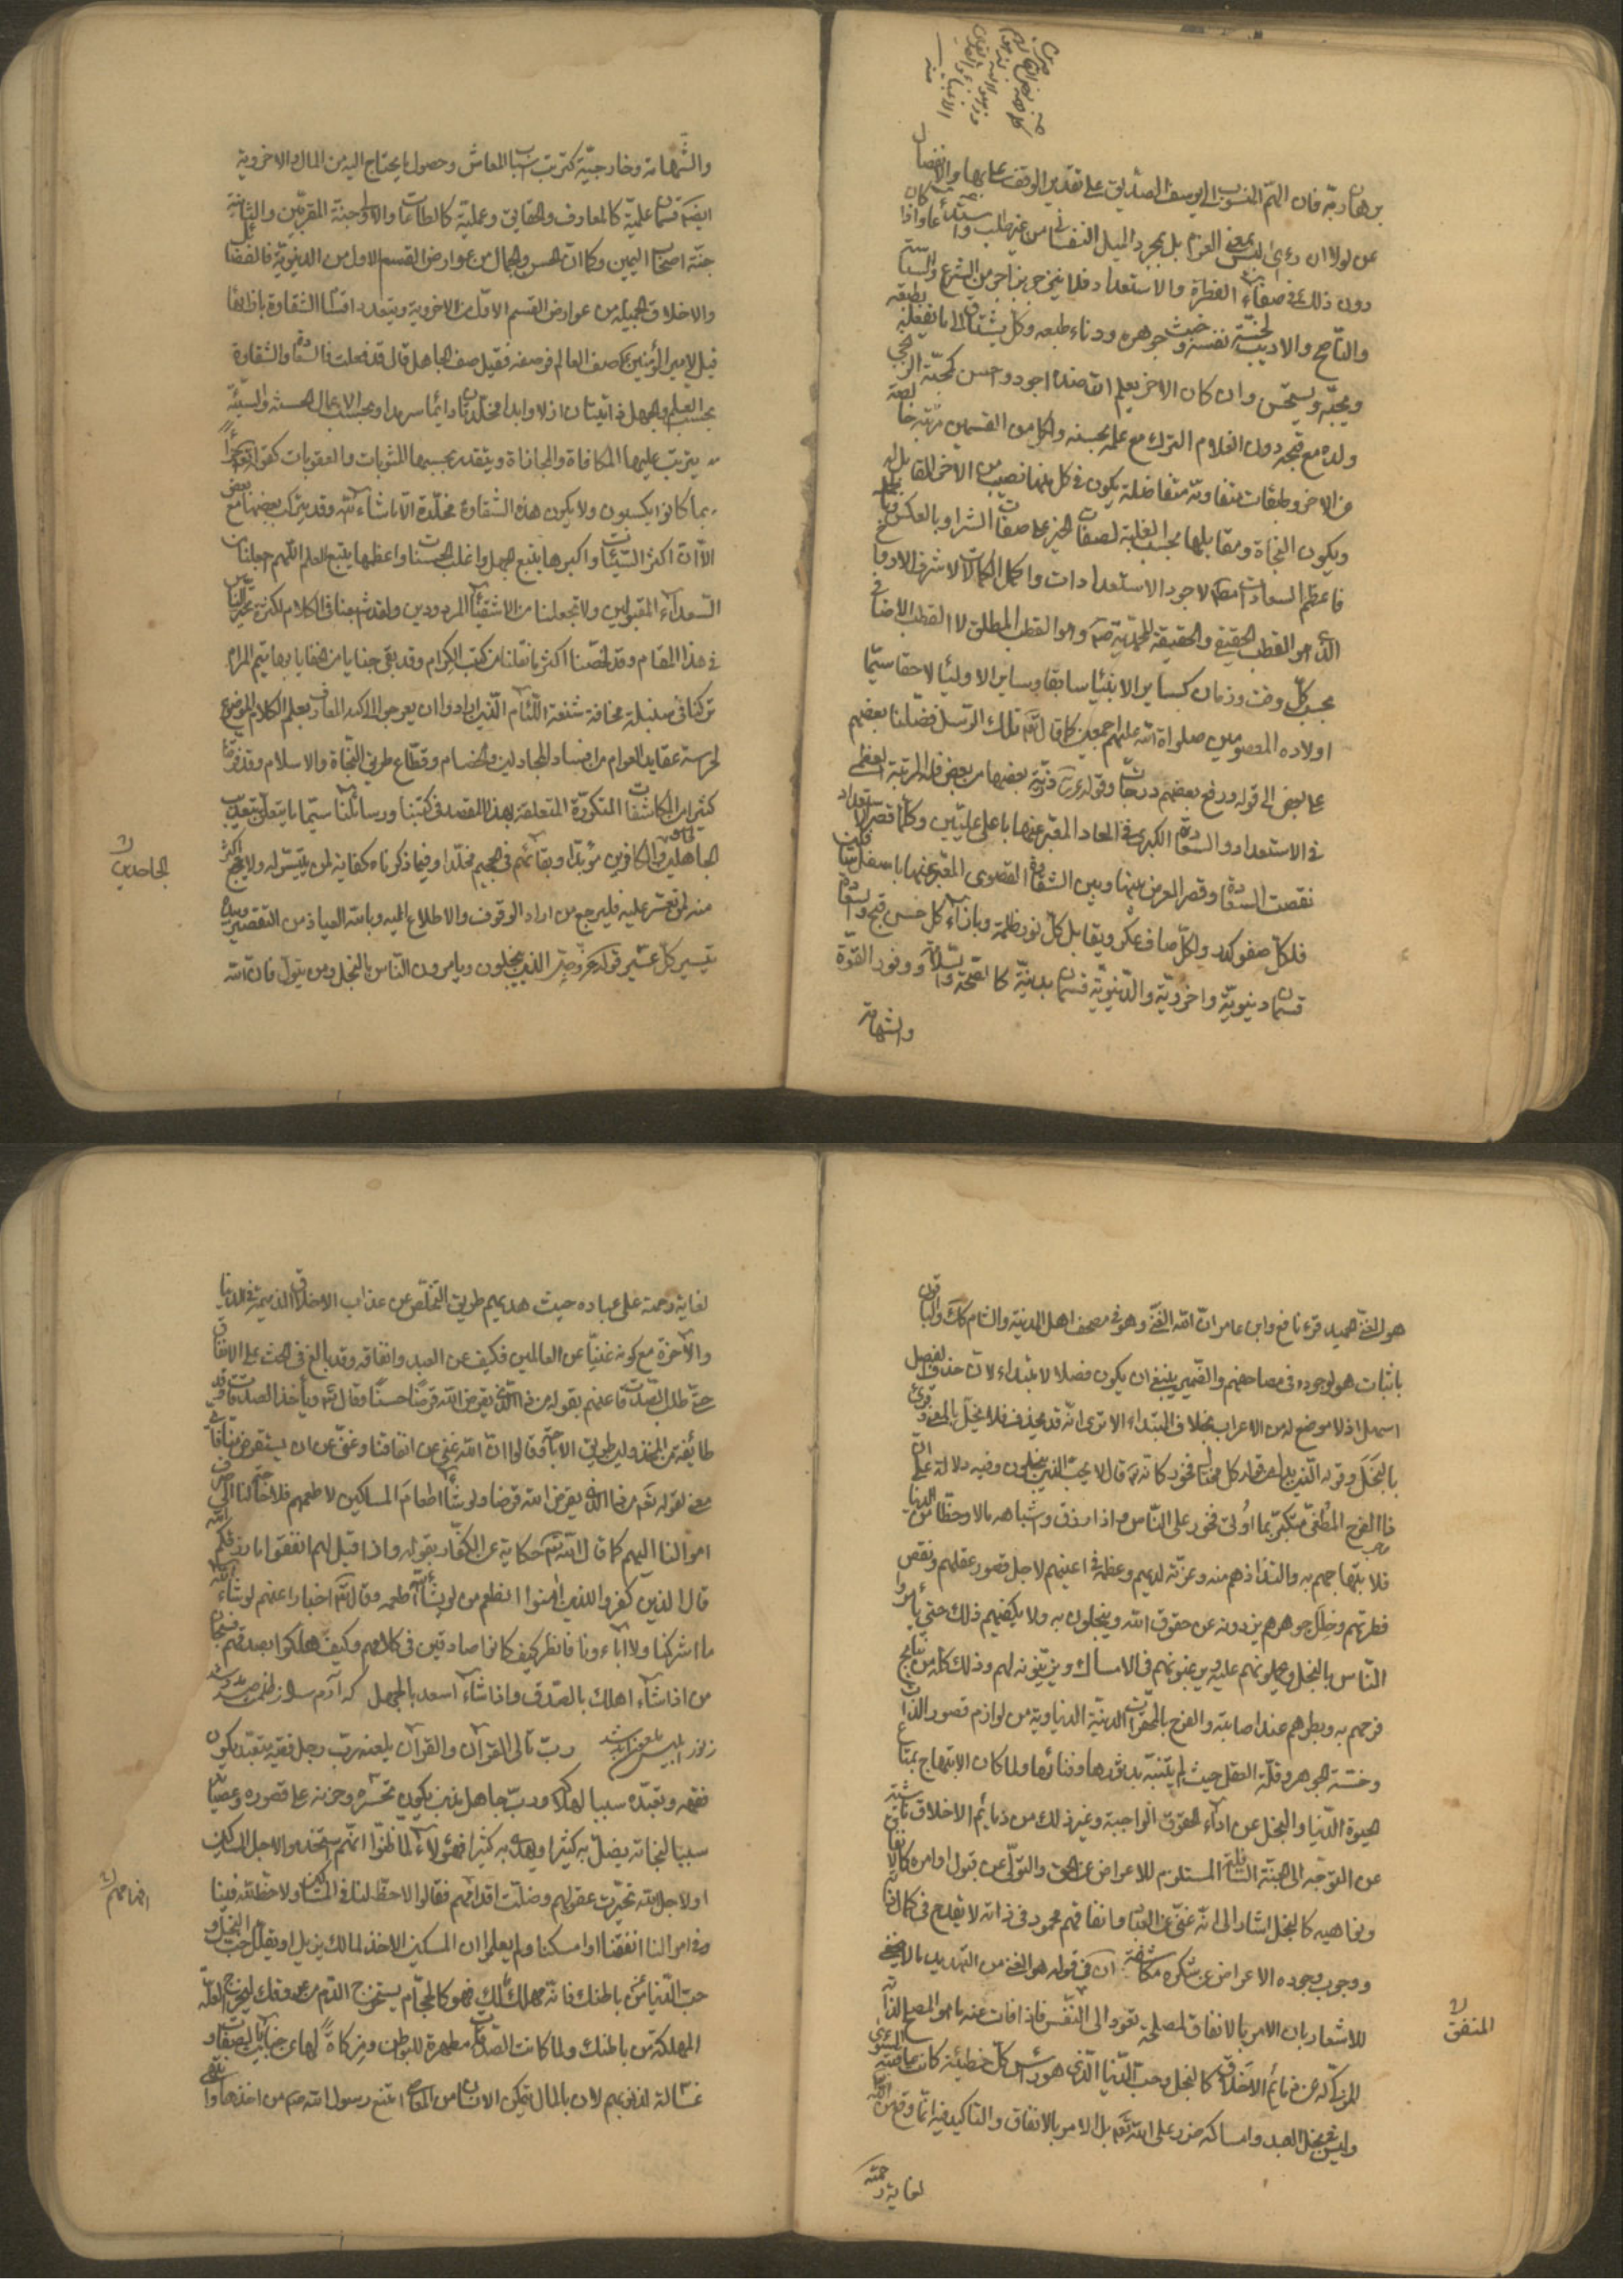 برهان ربه فان الهم المنسوب الى يوسف الصديق على تقدير الوقف على بها والانفصال
عن لولا ان رءى ليس بمعنى العزم بل بمجرد الميل النفسانى من غير طلب واستدعا واذا كان
دون ذلك فى صفاء الفطرة والاستعداد فلا ينزجر بزاجر من الشرع والسياسة
والناصح والاديب لخسة نفسه وخبث جوهره ودناءة طبعه وكل يشتاق الى ما يفعله بطبعه
ويحبه ويستحسن وان كان الاخر يعلم ان ضده اجود واحسن كمحبة الزنجى
ولده مع قبحه دون الغلام الترك مع علمه بحسنه ولكل من القسمين مرتبة خاصة
من الاخر وطبقات متفاوتة متفاضلة يكون فى كل منهما نصيب من الاخر المقابل له
ويكون النجاة ومقابلها بحسب الغلبة لصفات الخير على صفات الشر او بالعكس
فاعظم السعادات لاجود الاستعدادات واكمل الكمالات لاشرف
الذى هو القطب الحقيقى والحقيقة المحمدية صم وهو القطب المطلق لا القطب الاضافى
بحسب كل وقت وزمان كساير الانبيا سابقا وساير الاوليا لاحقا سيما
اولاده المعصومين صلواة الله عليهم اجمعين كما قال الله تلك الرسل فضلنا بعضهم
على بعض الى قوله ورفع بعضهم درجات وقوله ذرية بعضها من بعض فله المرتبة العظمى
فى الاستعداد والسعادة الكبرى فى المعاد المعبر عنها باعلى عليين وكلما قصر الاستعداد
نقصت السعادة وقصر المعرفن بينها وبين الشقاوة القصوى المعبر عنها باسفل
فلكل صفو كدر ولكل صاف عكر ويقابل كل نور ظلمة وبازاء كل حسن قبح والسعادة
قسمان دنيوية واخروية والدنيوية قسمان بدنية كالصحة والسلامة ووفور القوة
والشهامة
والشهامة وخارجية كترتب اسباب المعاش وحصول ما يحتاج اليه من المال والاخروية
ايضا قسمان علمية كالمعارف والحقايق وعملية كالطاعات والاولى جنة المقربين والثانية
جنة اصحاب اليمين وكما ان الحسن والجمال من عوارض القسم الاول من الدنيوية فالفضائل
والاخلاق الجميلة من عوارض القسم الاول من الاخروية ويتعدد اقسام الشقاوة بازائها
قيل لامير المؤمنين ع صف العالم فوصفه فقيل صف الجاهل قال قد فعلت فالسعادة والشقاوة
بحسب العلم والجهل ذاتيتان ازلا وابدا مخلدتان دائما سرمدا وبحسب الاعمال الحسنة والسيئة
يترتب عليهما المكافاة والمجازاة ويتقدر بحسبها المثوبات والعقوبات كقوله جزاء
بما كانوا يكسبون ولا يكون هذه الشقاوة مخلدة الا ما شاء الله وقد يتركب بعضها مع بعض
الا ان اكثر السيئات واكبرها يتبع الجهل واغلب الحسنات واعظمها يتبع العلم اللهم اجعلنا من
السعداء المقبولين ولا تجعلنا من الاشقياء المردودين ولقد اشبعنا فى الكلام لكثرة تحير الناس
فى هذا المقام وقد لخصنا اكثر ما نقلنا من كتب الكرام وقد بقى خبايا من خفايا بها يتم المرام
تركنا فى سنبلة مخافة شنعة اللئام الذين ارادوا ان يعرجوا الى المعارف بعلم الكلام الموضوع
لحراسة عقايد العوام من افساد المجادلين والخصام وقطاع طريق النجاة والاسلام وقد ذوقنا
كثيرا من المكاشفات المتكررة المتعلقة بهذا المقصد فى كتبنا ورسائلنا سيما ما يتعلق بتعذيب
الجاهلين والكافرين مؤبدا وبقائهم فى الجحيم مخلدا وفيما ذكرناه كفاية لمن يتيسر له ولا يحرج اكثر
منه لمن تعسر عليه فليرجع من اراد الوقوف والاطلاع اليه وبالله العياذ من التقصير وبيده
تيسير كل عسير قوله عز وجل الذين يبخلون ويامرون الناس بالبخل ومن يتول فان الله
الجاحدين
هو الغنى الحميد قرء نافع وابن عامر ان الله الغنى وهو فى مصحف اهل المدينة والشام كك والباقون
باثبات هو لوجوده فى مصاحفهم والضمير ينبغى ان يكون فصلا لا مبتداء لان حذف الفصل
اسهل اذ لا موضع له من الاعراب بخلاف المبتداء الا ترى انه قد يحذف فلا يخل بالمعنى وقرئ
بالبخل وقوله الذين بدل من قوله كل مختال فخور كانه قال لا يحب الذين يبخلون وفيه دلالة على ان
ذا الفرح المطغى متكبر بما اوتى فخور على الناس واذا رزق واشباهه مالا وحظا من الدنيا
فلابتهاجهم به والتذاذهم منه وعزته لديهم وعظمه فى اعينهم لاجل قصور عقلهم ونقص
فطرتهم وخلل جوهرهم يزدونه عن حقوق الله ويبخلون به ولا يكفيهم ذلك حتى يامروا
الناس بالبخل ويحملونهم عليه ويرغبونهم فى الامساك ويزينونه لهم وذلك كله من نتايج
فرحهم به وبطرهم عند اصابته والفرح بالمحقرات الدنية الدنياوية من لوازم قصور الذات
وخسة الجوهر وقلة العقل حيث لم يتنبه بدثورها وفنائها ولما كان الابتهاج بمتاع
الحيوة الدنيا والبخل عن اداء الحقوق الواجبة وغير ذلك من ذمايم الاخلاق ناشية
عن التوجه الى الجنبة السافلة المستلزم للاعراض عن الحق والتولى عن قبول اوامره كالانفاق
ونواهيه كالبخل اشار الى انه غنى عن العباد وانفاقهم محمود فى ذاته لا يقدح فى كمال ذاته
ووجوب وجوده الاعراض عن شكره مكاشفة ان فى قوله هو الغنى من التهديد ما لا يخفى
للاشعار بان الامر بالانفاق لمصلحة تعود الى النفس فاذا فات عنه ما هو المصلح لذاته
المزكى له عن ذمائم الاخلاق كالبخل وحب الدنيا الذى هو راس كل خطيئة كانت عاقبته السوءى
وليس فى بخل العبد وامساكه ضرر على الله تعم بل الامر بالانفاق والتاكيد فيه انما وقع من الله
لغاية رحمته
المنفق
لغاية رحمة على عباده حيث هديهم طريق التخلص عن عذاب الاخلاق الذميمة فى الدنيا
والآخرة مع كونه غنيا عن العالمين فكيف عن العبد وانفاقه وقد بالغ فى الحث على الانفاق
حتى طلب الصدقات عنهم بقوله من ذا الذى يقرض الله قرضا حسنا وقال الله وياخذ الصدقات
طائفة من المتخذ ولين طريق الاباحة فقالوا ان الله غنى عن انفاقنا وغنى عن ان يستقرض منا فاى
معنى لقوله تعم من ذا الذى يقرض الله قرضا ولو شاء اطعام المساكين لاطعمهم فلا حاجة لنا الى صرف
اموالنا اليهم كما قال الله تعم حكاية عن الكفار بقوله واذا قيل لهم انفقوا مما رزقكم الله
قال الذين كفروا للذين امنوا انطعم من لو يشاء الله اطعمه وقال الله اخبارا عنهم لو شاء الله
ما اشركنا ولا آباءونا فانظر كيف كانوا صادقين فى كلامهم وكيف هلكوا بصدقهم فسبحان
من اذا شاء اهلك بالصدق واذا شاء اسعد بالجهل كه آدم
رب تالى القرآن والقرآن يلعنه رب رجل فقيه يتعبد يكون
فقهه وتعبده سببا لهلاكه ورب جاهل يذنب يكون تحسره وحزنه على قصوره وعصيانه
سببا لنجاته يضل به كثيرا ويهدى به كثيرا فهؤلاء لما ظنوا انهم استخدموا لاجل المساكين
او لاجل الله تحيرت عقولهم وضلت اقدامهم فقالوا لا حظ لنا فى المساكين ولا حظ لله فينا
وفى اموالنا انفقنا او امسكنا ولم يعلموا ان المسكين الاخذ لمالك يزيل او يقلل خبث البخل و
حب الدنيا من باطنك فانه مهلك لك فهو كالحجام يستخرج الدم من عروقك ليخرج العلة
المهلكة من باطنك ولما كانت الصدقات مطهرة للبواطن ومزكاة لها عن خبايث الصفات و
غسالة لذنوبهم لان بالمال يتمكن الانسان من المعاصى امتنع رسول الله صم من اخذها
اقدامهم